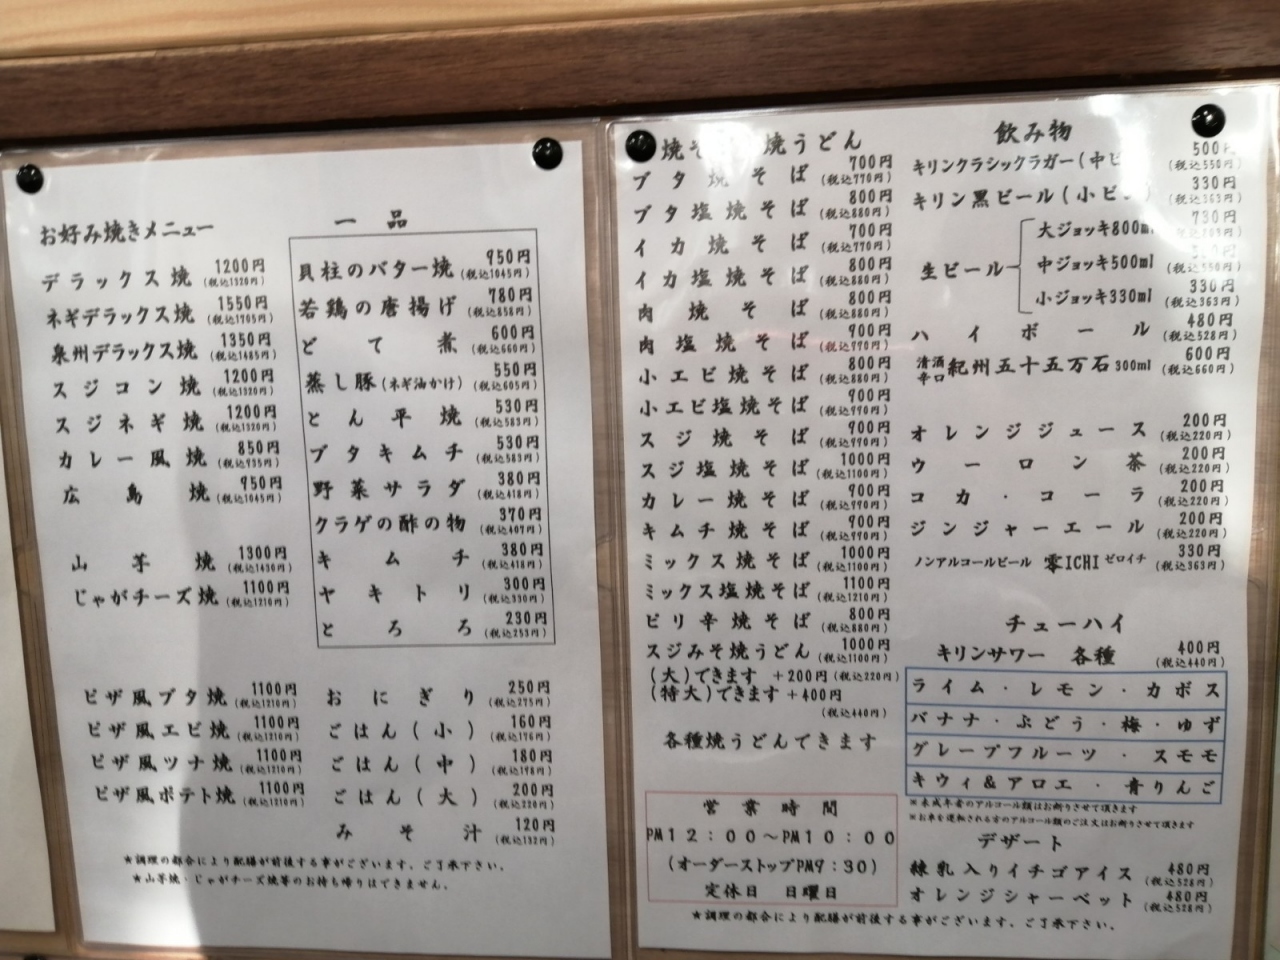 お好み焼きメニュー
デラックス焼 1200円 (税込1320円)
ネギデラックス焼 1550円 (税込1705円)
泉州デラックス焼 1350円 (税込1485円)
スジコン焼 1200円 (税込1320円)
スジネギ焼 1200円 (税込1320円)
カレー風焼 850円 (税込935円)
広島焼 950円 (税込1045円)
山芋焼 1300円 (税込1430円)
じゃがチーズ焼 1100円 (税込1210円)
ピザ風ブタ焼 1100円 (税込1210円)
ピザ風エビ焼 1100円 (税込1210円)
ピザ風ツナ焼 1100円 (税込1210円)
ピザ風ポテト焼 1100円 (税込1210円)
一品
貝柱のバター焼 950円 (税込1045円)
若鶏の唐揚げ 780円 (税込858円)
どて煮 600円 (税込660円)
蒸し豚(ネギ油かけ) 550円 (税込605円)
とん平焼 530円 (税込583円)
ブタキムチ 530円 (税込583円)
野菜サラダ 380円 (税込418円)
クラゲの酢の物 370円 (税込407円)
キムチ 380円 (税込418円)
ヤキトリ 300円 (税込330円)
とろろ 230円 (税込253円)
おにぎり 250円 (税込275円)
ごはん(小) 160円 (税込176円)
ごはん(中) 180円 (税込198円)
ごはん(大) 200円 (税込220円)
みそ汁 120円 (税込132円)
★調理の都合により配膳が前後する事がございます、ご了承下さい。
★山芋焼・じゃがチーズ焼等のお持ち帰りはできません。
焼そ 焼うどん
ブタ焼そば 700円 (税込770円)
ブタ塩焼そば 800円 (税込880円)
イカ焼そば 700円 (税込770円)
イカ塩焼そば 800円 (税込880円)
肉焼そば 800円 (税込880円)
肉塩焼そば 900円 (税込990円)
小エビ焼そば 800円 (税込880円)
小エビ塩焼そば 900円 (税込990円)
スジ焼そば 900円 (税込990円)
スジ塩焼そば 1000円 (税込1100円)
カレー焼そば 900円 (税込990円)
キムチ焼そば 900円 (税込990円)
ミックス焼そば 1000円 (税込1100円)
ミックス塩焼そば 1100円 (税込1210円)
ピリ辛焼そば 800円 (税込880円)
スジみそ焼うどん 1000円 (税込1100円)
(大)できます +200円 (税込220円)
(特大)できます +400円
(税込440円)
各種焼うどんできます
営業時間
PM12:00〜PM10:00
(オーダーストップPM9:30)
定休日 日曜日
★調理の都合により配膳が前後する事がございます、ご了承下さい。
飲み物
キリンクラシックラガー(中ビ 500円 (税込550円)
キリン黒ビール(小ビン) 330円 (税込363円)
生ビール
大ジョッキ800ml 730円
中ジョッキ500ml (税込550円)
小ジョッキ330ml 330円 (税込363円)
ハイボール 480円 (税込528円)
清酒辛口 紀州五十五万石 300ml 600円 (税込660円)
オレンジジュース 200円 (税込220円)
ウーロン茶 200円 (税込220円)
コカ・コーラ 200円 (税込220円)
ジンジャーエール 200円 (税込220円)
ノンアルコールビール 零ICHI ゼロイチ 330円 (税込363円)
チューハイ
キリンサワー 各種 400円 (税込440円)
ライム・レモン・カボス
バナナ・ぶどう・梅・ゆず
グレープフルーツ・スモモ
キウィ&アロエ・青りんご
※未成年者のアルコール類はお断りさせて頂きます
※お車を運転される方のアルコール類のご注文はお断りさせて頂きます
デザート
練乳入りイチゴアイス 480円 (税込528円)
オレンジシャーベット 480円 (税込528円)